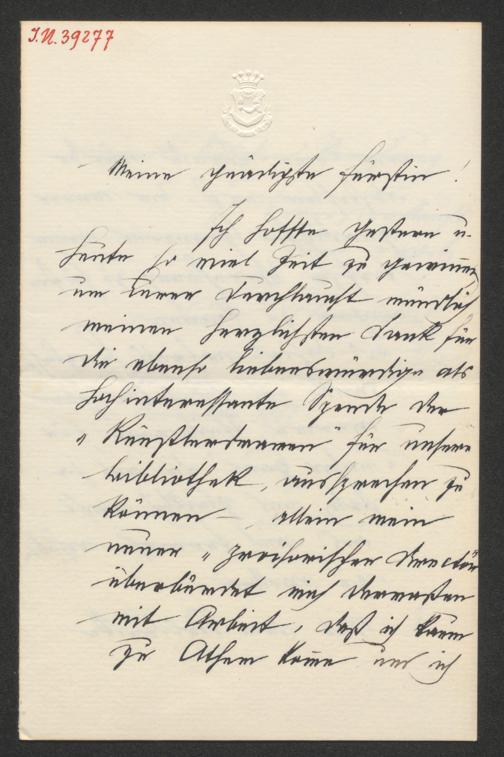 I.N. 39277
Meine gnädigste Fürstin!
Ich hoffte gestern u.
heute so viel Zeit zu gewinnen
um Eurer Durchlaucht mündlich
meinen herzlichsten Dank für
die ebenso liebenswürdige als
hochinteressante Spende der
„Künstlerdramen" für unsere
Bibliothek, aussprechen zu
können – allein mein
neuer „provisorischer Director
überbürdet mich dermaßen
mit Arbeit, daß ich kaum
zu Athem kome und ich